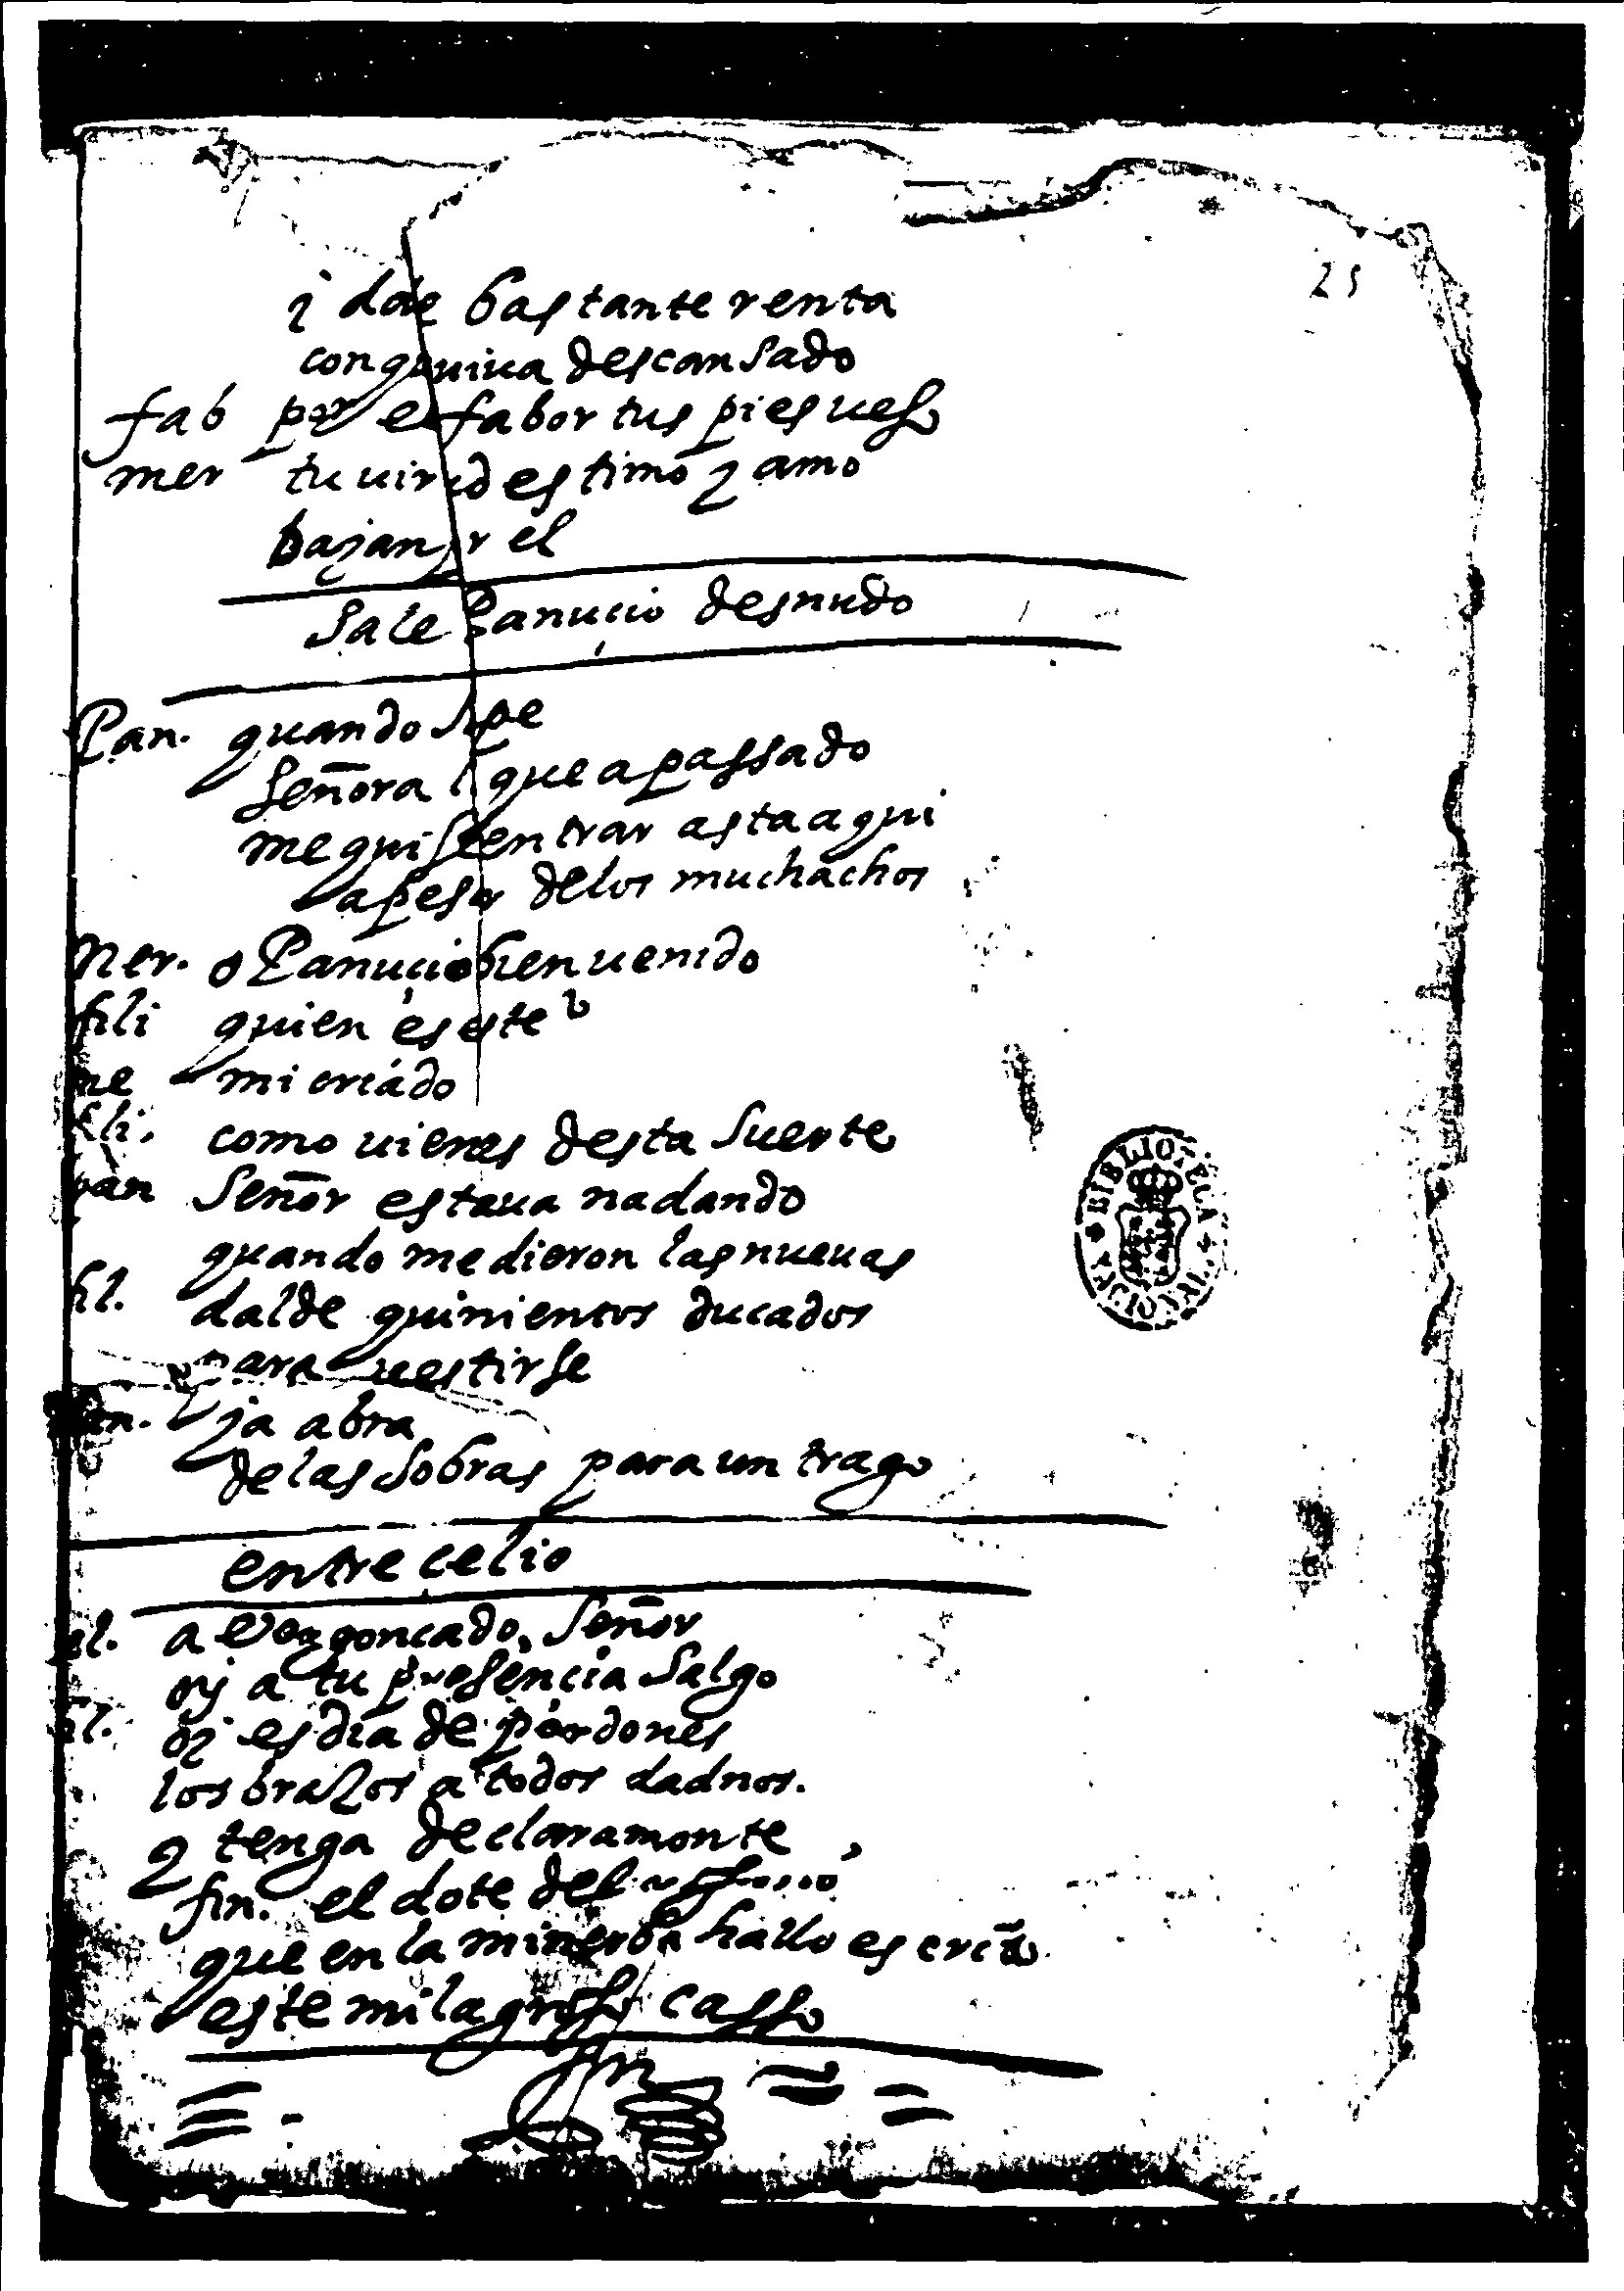 25
i dále bastante renta
con q viua descansado
fab por el fabor tus pies ueso
mer tu uirtud estimo y amo
bajan y el
Sale Panuçio desnudo
Pan. quando supe
Señora lo que a passado
me quise entrar asta aqui
a pesar de los muchachos
Ner. o Panuçio bienuenido
fili quien es este
ne mi criádo
fili. como uienes desta suerte
pan Señor estaua nadando
quando me dieron las nueuas
fil. dalde quinientos ducados
para uestirse
pan. ja abra
de las sobras para un trago
entre çelio
çel. a vergonçado, Señor
oy a tu presençia salgo
fil. oy es dia de perdones
los braços a todos dadnos.
y tenga de claramonte
fin. el dote del
que en la minerba hallo escrito
este milagroso casso
fin
BIBLIOTECA